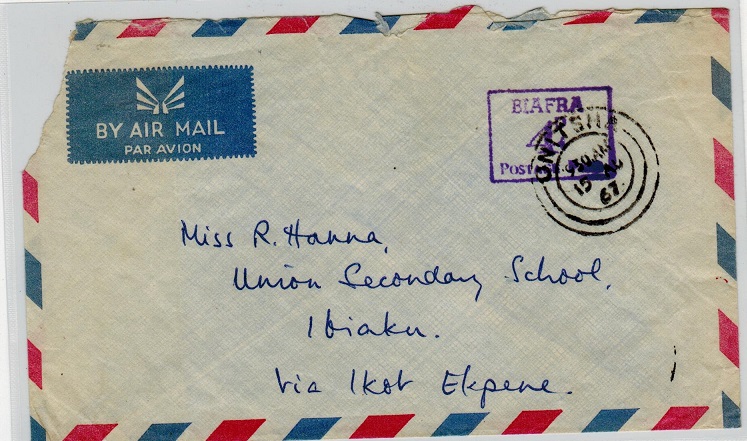 BY AIR MAIL
PAR AVION
BIAFRA
4
ONITSHA
15
67
Miss R. Hanna,
Union Secondary School,
Ibiaku.
via Ikot Ekpene.